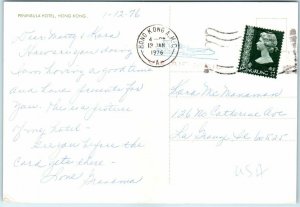 PENINSULA HOTEL, HONG KONG
1-12-76
Dear Marty & Kara
How are you doing
I am having a good time
and have presents for
you. This is a picture
of my hotel -
See you before the
card gets there -
Love
Grandma
HONG KONG G.P.O.
19 JAN
1976
A
HONG KONG
Kara Mc Manaman
126 No Catherine Ave
La Grange Ill 60525
USA